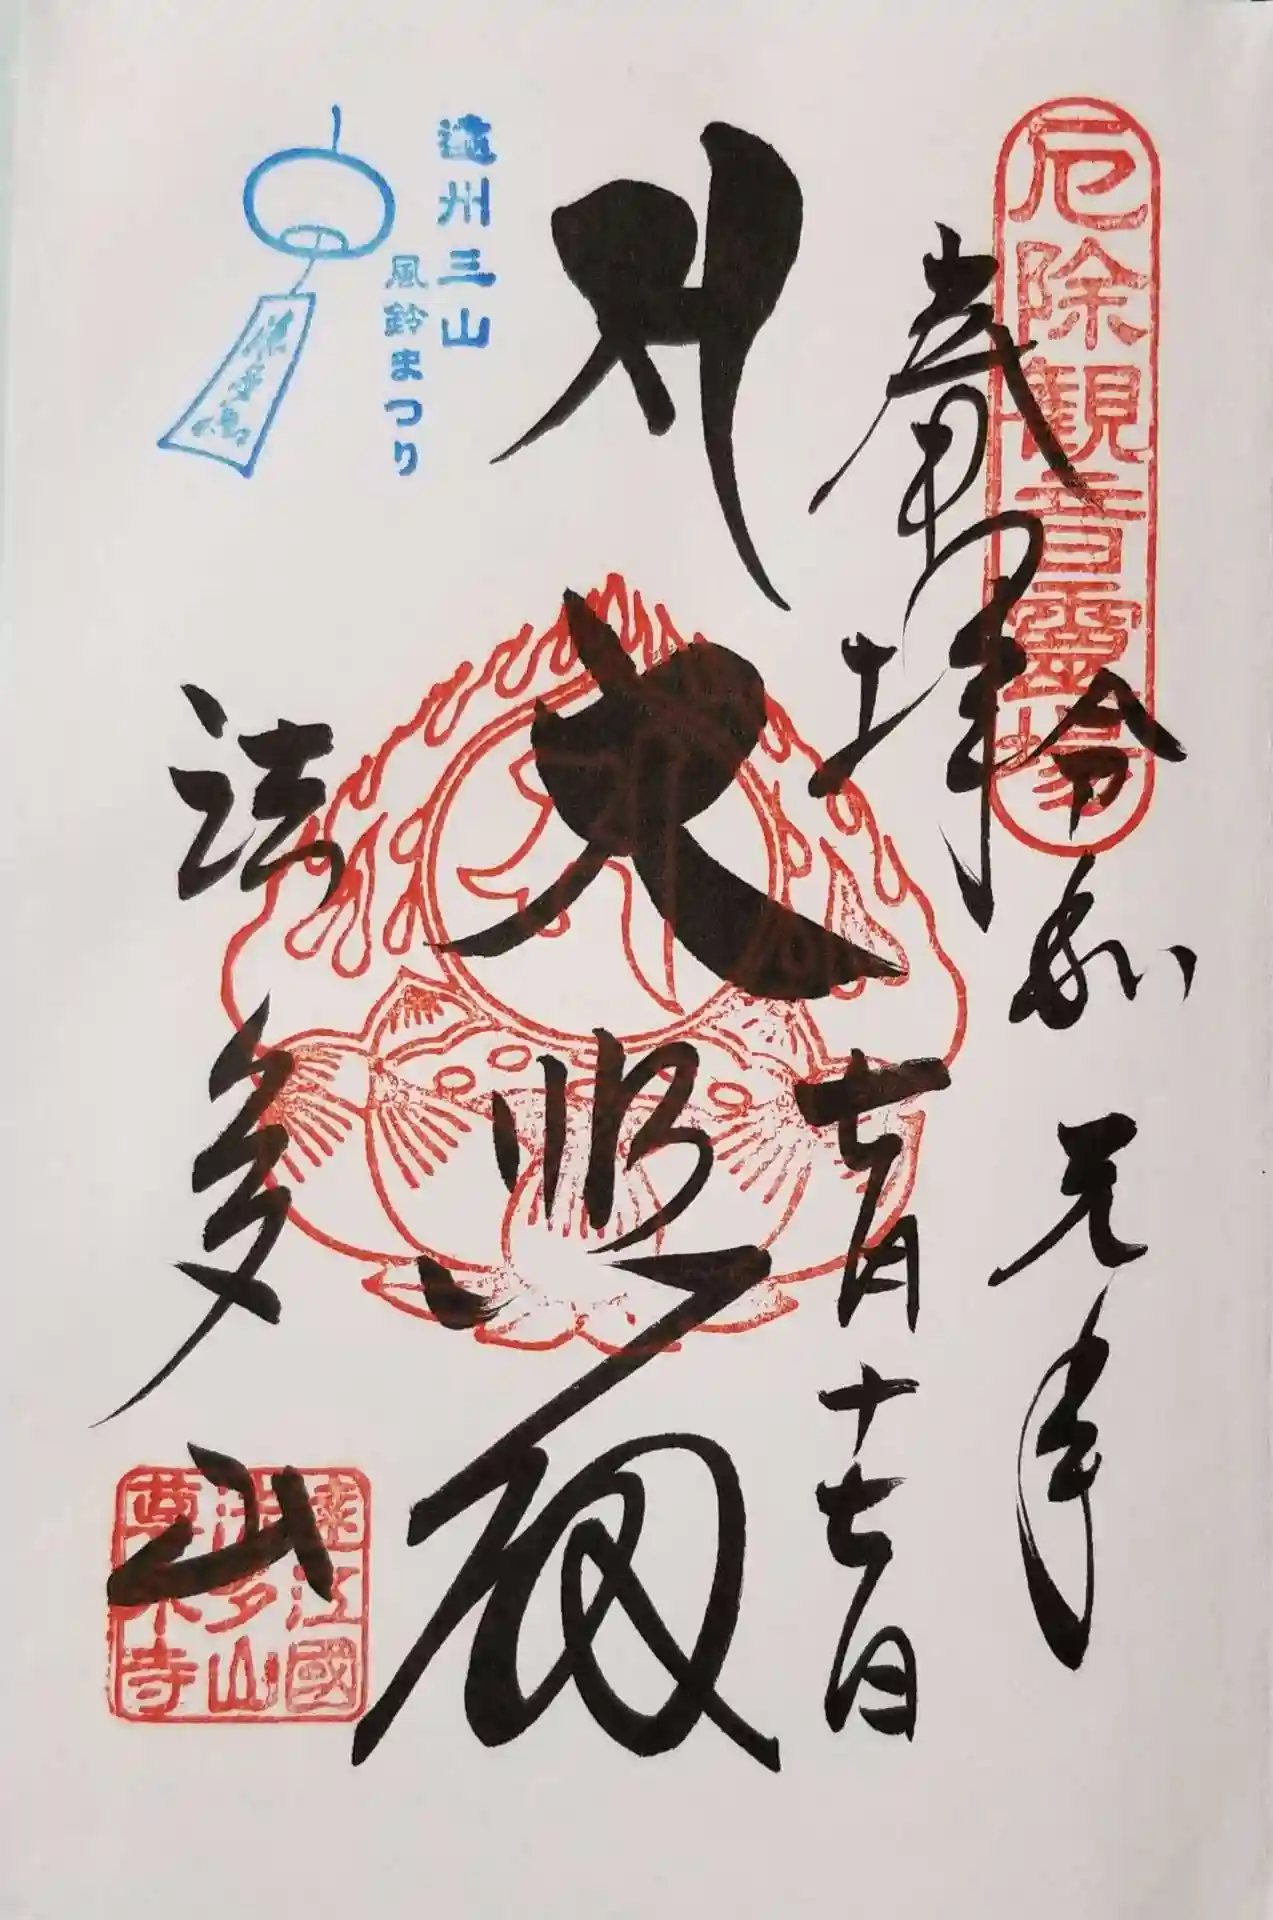 厄除観音霊場
奉拝
令和元年
七月十七日
大悲殿
法多山
遠江國
法多山
尊永寺
遠州三山
風鈴まつり
法多山